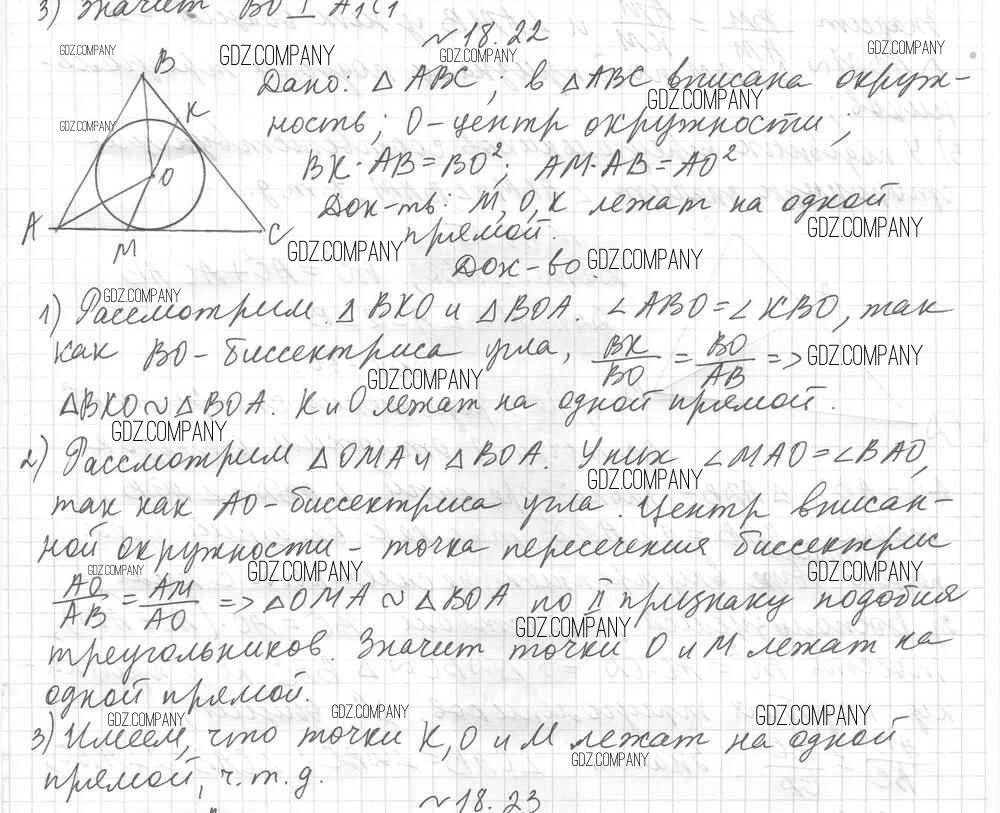 3) Значит BO ⊥ A₁C₁
~ 18.22
GDZ.COMPANY GDZ.COMPANY GDZ.COMPANY GDZ.COMPANY
B
Дано: △ ABC; в △ABC вписана окруж-
GDZ.COMPANY
K
GDZ.COMPANY
ность; O-центр окружности;
BK·AB=BO²; AM·AB=AO²
O
Док-ть: M, O, K лежат на одной
A
M
C
GDZ.COMPANY
прямой.
GDZ.COMPANY
Док-во. GDZ.COMPANY
GDZ.COMPANY
1) Рассмотрим △ BKO и △BOA. ∠ABO=∠KBO, так
как BO-биссектриса угла, BK/BO = BO/AB => GDZ.COMPANY
GDZ.COMPANY
△BKO ~ △BOA. K и O лежат на одной прямой.
GDZ.COMPANY
2) Рассмотрим △OMA и △BOA. У них ∠MAO=∠BAO,
GDZ.COMPANY
так как AO-биссектриса угла. Центр вписан-
ной окружности - точка пересечения биссектрис
GDZ.COMPANY GDZ.COMPANY GDZ.COMPANY
AO/AB = AM/AO => △OMA ~ △BOA по II признаку подобия
GDZ.COMPANY
треугольников. Значит точки O и M лежат на
одной прямой.
GDZ.COMPANY GDZ.COMPANY GDZ.COMPANY
3) Имеем, что точки K, O и M лежат на одной
GDZ.COMPANY
прямой, ч.т.д.
~ 18.23